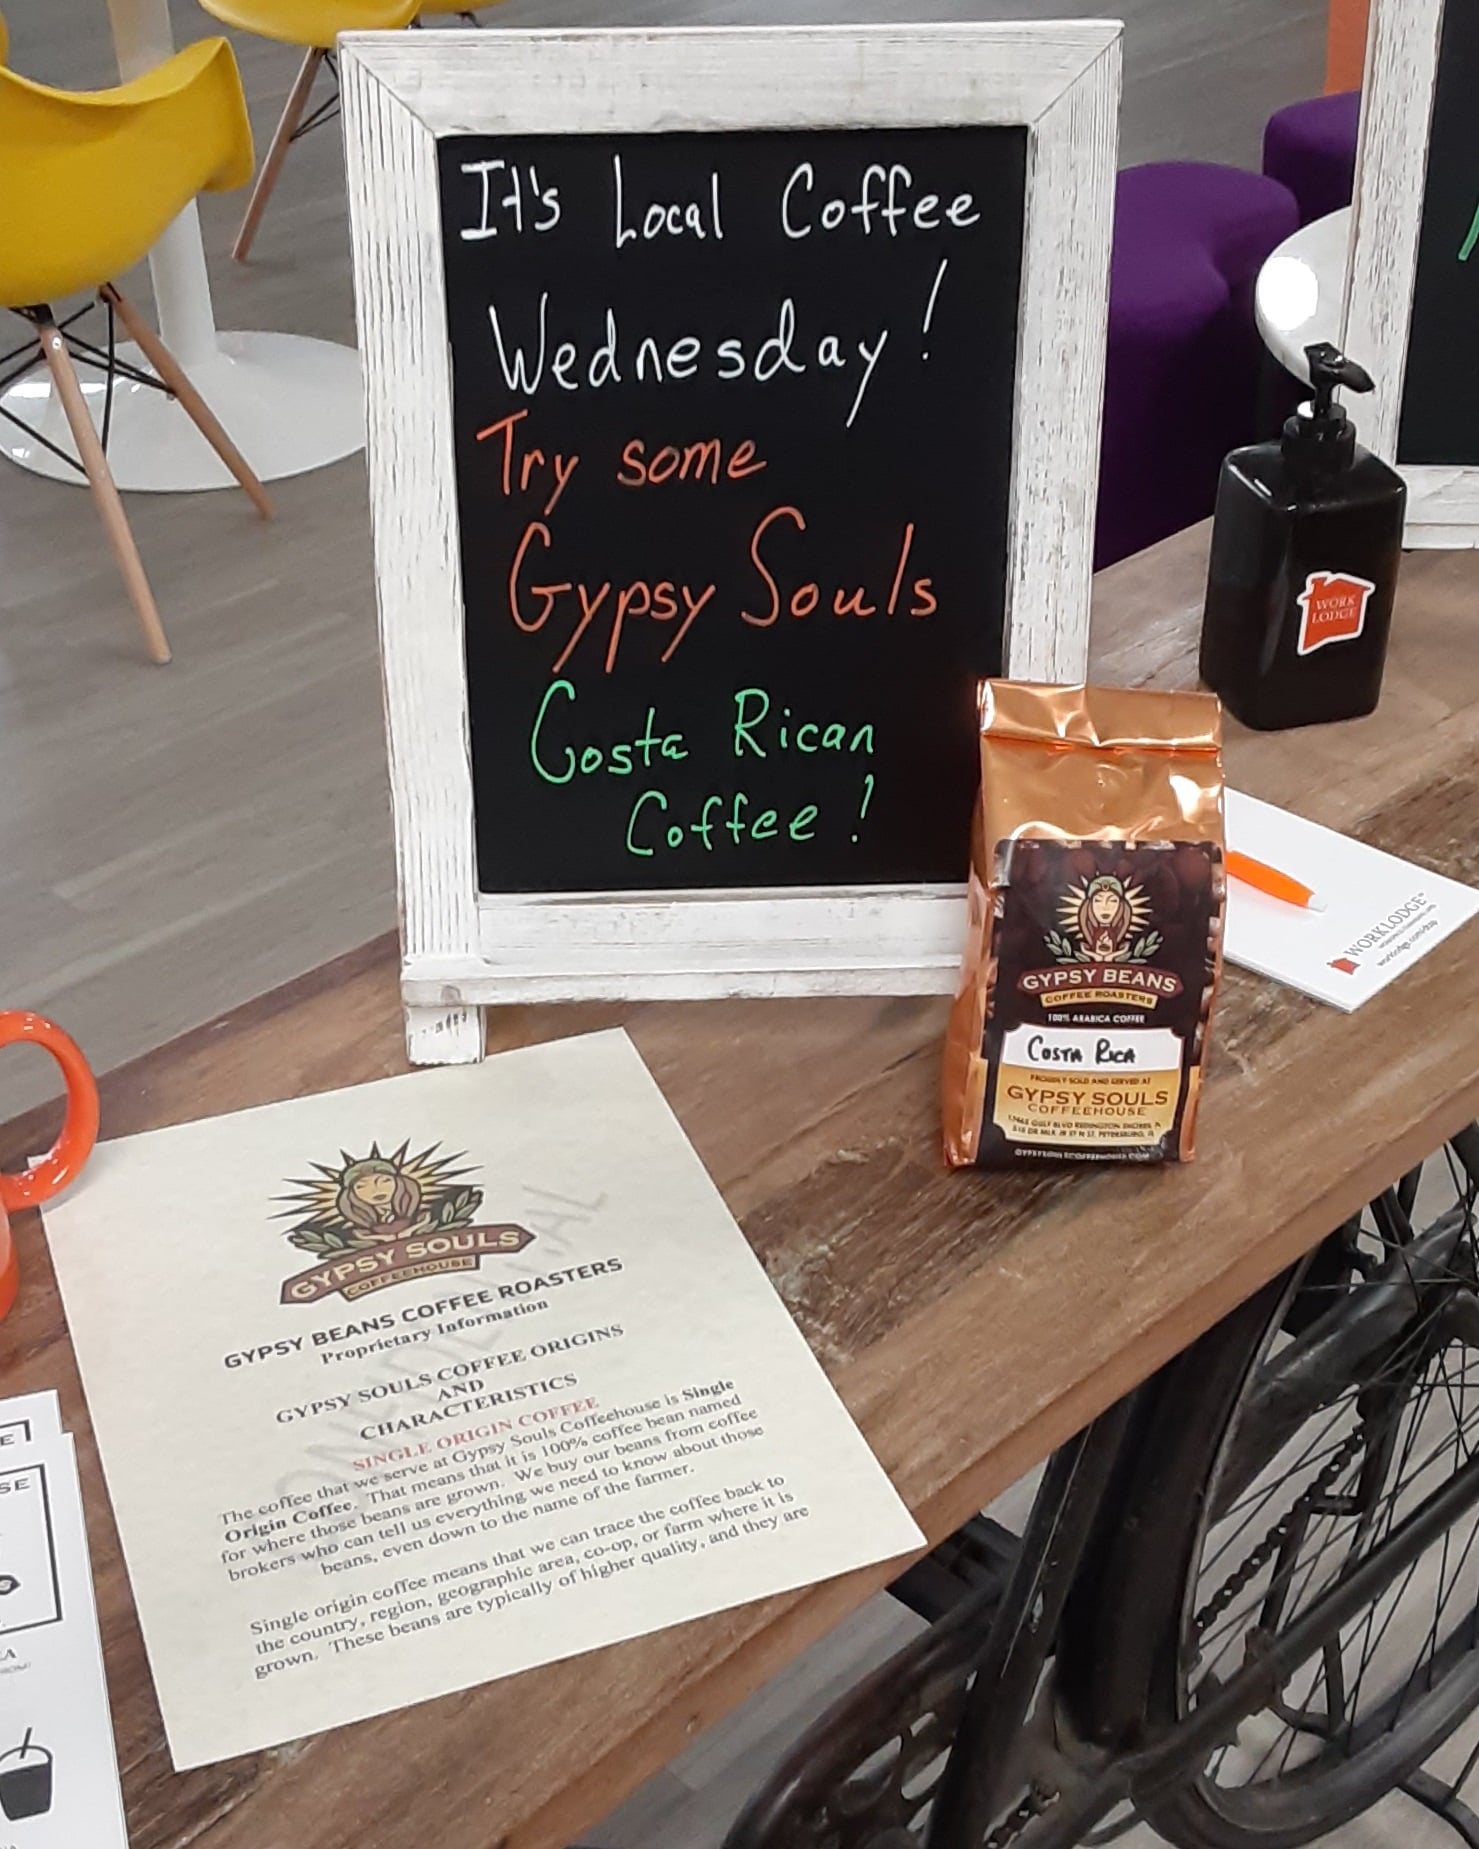 It's Local Coffee
Wednesday!
Try some
Gypsy Souls
Costa Rican
Coffee!
WORK
LODGE
GYPSY BEANS
COFFEE ROASTERS
100% ARABICA COFFEE
COSTA RICA
PROUDLY SOLD AND SERVED AT
GYPSY SOULS
COFFEEHOUSE
GULF BLVD REDINGTON SHORES, FL
ST N ST. PETERSBURG, FL
GYPSYSOULSCOFFEEHOUSE.COM
WORKLODGE™
GYPSY SOULS
COFFEEHOUSE
GYPSY BEANS COFFEE ROASTERS
Proprietary Information
GYPSY SOULS COFFEE ORIGINS
AND
CHARACTERISTICS
SINGLE ORIGIN COFFEE
The coffee that we serve at Gypsy Souls Coffeehouse is Single
Origin Coffee. That means that it is 100% coffee bean named
for where those beans are grown. We buy our beans from coffee
brokers who can tell us everything we need to know about those
beans, even down to the name of the farmer.
Single origin coffee means that we can trace the coffee back to
the country, region, geographic area, co-op, or farm where it is
grown. These beans are typically of higher quality, and they are